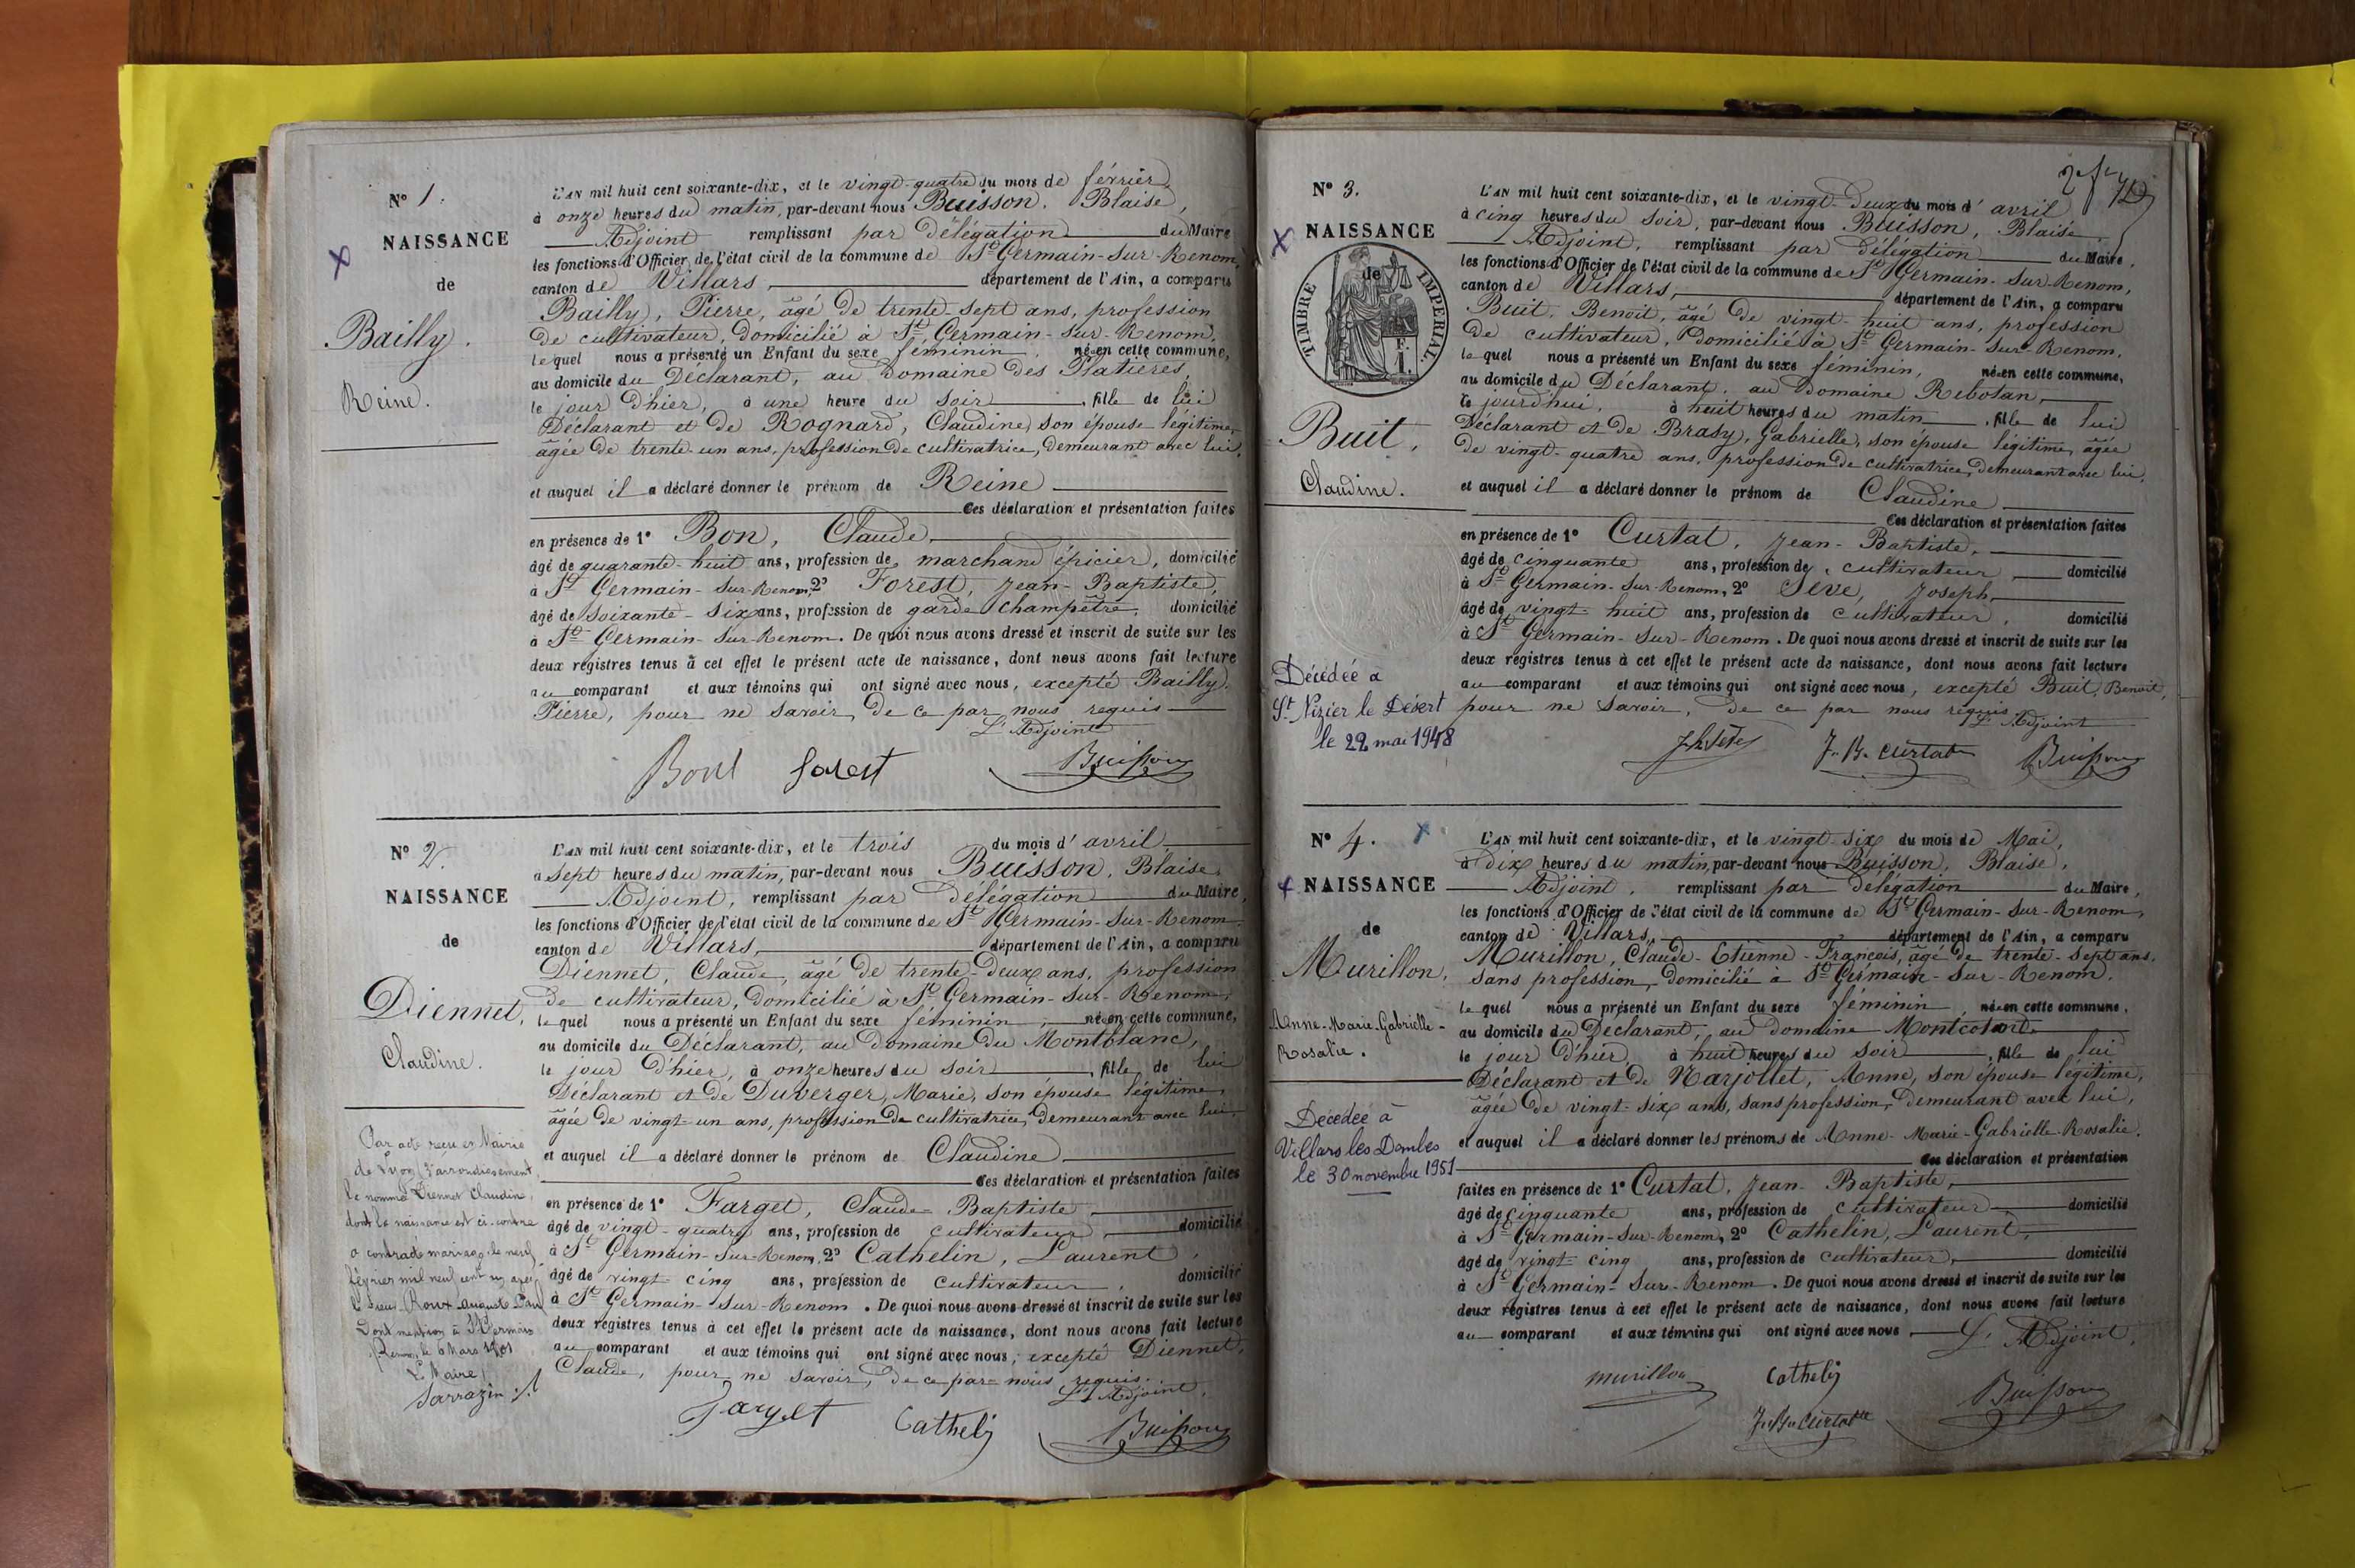 N° 1.
NAISSANCE
de
Bailly.
Reine.
L'AN mil huit cent soixante-dix, et le vingt-quatre du mois de février,
à onze heures du matin, par-devant nous Buisson, Blaise,
Adjoint remplissant par délégation du Maire
les fonctions d'Officier de l'état civil de la commune de St Germain-sur-Renom,
canton de Villars, département de l'Ain, a comparu
Bailly, Pierre, âgé de trente-sept ans, profession
de cultivateur, domicilié à St Germain-sur-Renom,
lequel nous a présenté un Enfant du sexe féminin, née en cette commune,
au domicile du Déclarant, au domaine des Platières,
le jour d'hier, à une heure du soir, fille de lui
Déclarant et de Rognard, Claudine, son épouse légitime,
âgée de trente-un ans, profession de cultivatrice, demeurant avec lui,
et auquel il a déclaré donner le prénom de Reine
Ces déclaration et présentation faites
en présence de 1° Bon, Claude,
âgé de quarante-huit ans, profession de marchand épicier, domicilié
à St Germain-sur-Renom, 2° Forest, Jean-Baptiste,
âgé de soixante-six ans, profession de garde champêtre, domicilié
à St Germain-sur-Renom. De quoi nous avons dressé et inscrit de suite sur les
deux registres tenus à cet effet le présent acte de naissance, dont nous avons fait lecture
au comparant et aux témoins qui ont signé avec nous, excepté Bailly,
Pierre, pour ne savoir, de ce par nous requis
L'Adjoint
Bon forest Buisson
N° 2.
NAISSANCE
de
Diennet,
Claudine.
Par acte reçu en Mairie
de Lyon arrondissement
le nommé Diennet Claudine,
dont la naissance est ci-contre
a contracté mariage le neuf
février mil neuf cent un avec
le sieur Roux Auguste
Dont mention à St Germain
Renom, le 6 Mars 1901
Le Maire,
Sarrazin
L'AN mil huit cent soixante-dix, et le trois du mois d'avril
à sept heures du matin, par-devant nous Buisson, Blaise,
Adjoint, remplissant par délégation du Maire,
les fonctions d'Officier de l'état civil de la commune de St Germain-sur-Renom
canton de Villars, département de l'Ain, a comparu
Diennet, Claude, âgé de trente-deux ans, profession
de cultivateur, domicilié à St Germain-sur-Renom,
lequel nous a présenté un Enfant du sexe féminin, née en cette commune,
au domicile du Déclarant, au domaine du Montblanc,
le jour d'hier, à onze heures du soir, fille de lui
Déclarant et de Duverger, Marie, son épouse légitime,
âgée de vingt-un ans, profession de cultivatrice, demeurant avec lui,
et auquel il a déclaré donner le prénom de Claudine.
Ces déclaration et présentation faites
en présence de 1° Farget, Claude-Baptiste,
âgé de vingt-quatre ans, profession de cultivateur, domicilié
à St Germain-sur-Renom, 2° Cathelin, Laurent,
âgé de vingt-cinq ans, profession de cultivateur, domicilié
à St Germain-sur-Renom. De quoi nous avons dressé et inscrit de suite sur les
deux registres tenus à cet effet le présent acte de naissance, dont nous avons fait lecture
au comparant et aux témoins qui ont signé avec nous, excepté Diennet,
Claude, pour ne savoir, de ce par nous requis.
L'Adjoint,
Farget Cathelin Buisson
N° 3.
NAISSANCE
de
TIMBRE IMPERIAL.
Buit,
Claudine.
Décédée à
St Nizier le Désert
le 22 mai 1948
L'AN mil huit cent soixante-dix, et le vingt-deux du mois d'avril
à cinq heures du soir, par-devant nous Buisson, Blaise
Adjoint, remplissant par délégation du Maire,
les fonctions d'Officier de l'état civil de la commune de St Germain-sur-Renom,
canton de Villars, département de l'Ain, a comparu
Buit, Benoit, âgé de vingt-huit ans, profession
de cultivateur, domicilié à St Germain-sur-Renom,
lequel nous a présenté un Enfant du sexe féminin, née en cette commune,
au domicile du Déclarant, au domaine Rebotan,
le jourd'hui, à huit heures du matin, fille de lui
Déclarant et de Brasy, Gabrielle, son épouse légitime, âgée
de vingt-quatre ans, profession de cultivatrice, demeurant avec lui,
et auquel il a déclaré donner le prénom de Claudine
Ces déclaration et présentation faites
en présence de 1° Curtat, Jean-Baptiste,
âgé de cinquante ans, profession de cultivateur, domicilié
à St Germain-sur-Renom, 2° Sève, Joseph,
âgé de vingt-huit ans, profession de cultivateur, domicilié
à St Germain-sur-Renom. De quoi nous avons dressé et inscrit de suite sur les
deux registres tenus à cet effet le présent acte de naissance, dont nous avons fait lecture
au comparant et aux témoins qui ont signé avec nous, excepté Buit, Benoit,
pour ne savoir, de ce par nous requis.
L'Adjoint
J. B. Curtat Buisson
N° 4.
NAISSANCE
de
Murillon,
Anne-Marie-Gabrielle-
Rosalie.
Décédée à
Villars les Dombes
le 30 novembre 1951
L'AN mil huit cent soixante-dix, et le vingt-six du mois de Mai,
à dix heures du matin, par-devant nous Buisson, Blaise,
Adjoint, remplissant par délégation du Maire,
les fonctions d'Officier de l'état civil de la commune de St Germain-sur-Renom,
canton de Villars, département de l'Ain, a comparu
Murillon, Claude-Etienne-François, âgé de trente-sept ans,
sans profession, domicilié à St Germain-sur-Renom,
lequel nous a présenté un Enfant du sexe féminin, née en cette commune,
au domicile du Déclarant, au domaine
le jour d'hier, à huit heures du soir, fille de lui
Déclarant et de Marjollet, Anne, son épouse légitime,
âgée de vingt-six ans, sans profession, demeurant avec lui,
et auquel il a déclaré donner les prénoms de Anne-Marie-Gabrielle-Rosalie.
Ces déclaration et présentation
faites en présence de 1° Curtat, Jean-Baptiste,
âgé de cinquante ans, profession de cultivateur, domicilié
à St Germain-sur-Renom, 2° Cathelin, Laurent,
âgé de vingt-cinq ans, profession de cultivateur, domicilié
à St Germain-sur-Renom. De quoi nous avons dressé et inscrit de suite sur les
deux registres tenus à cet effet le présent acte de naissance, dont nous avons fait lecture
au comparant et aux témoins qui ont signé avec nous
L'Adjoint,
Murillon Cathelin Buisson
J. B. Curtat